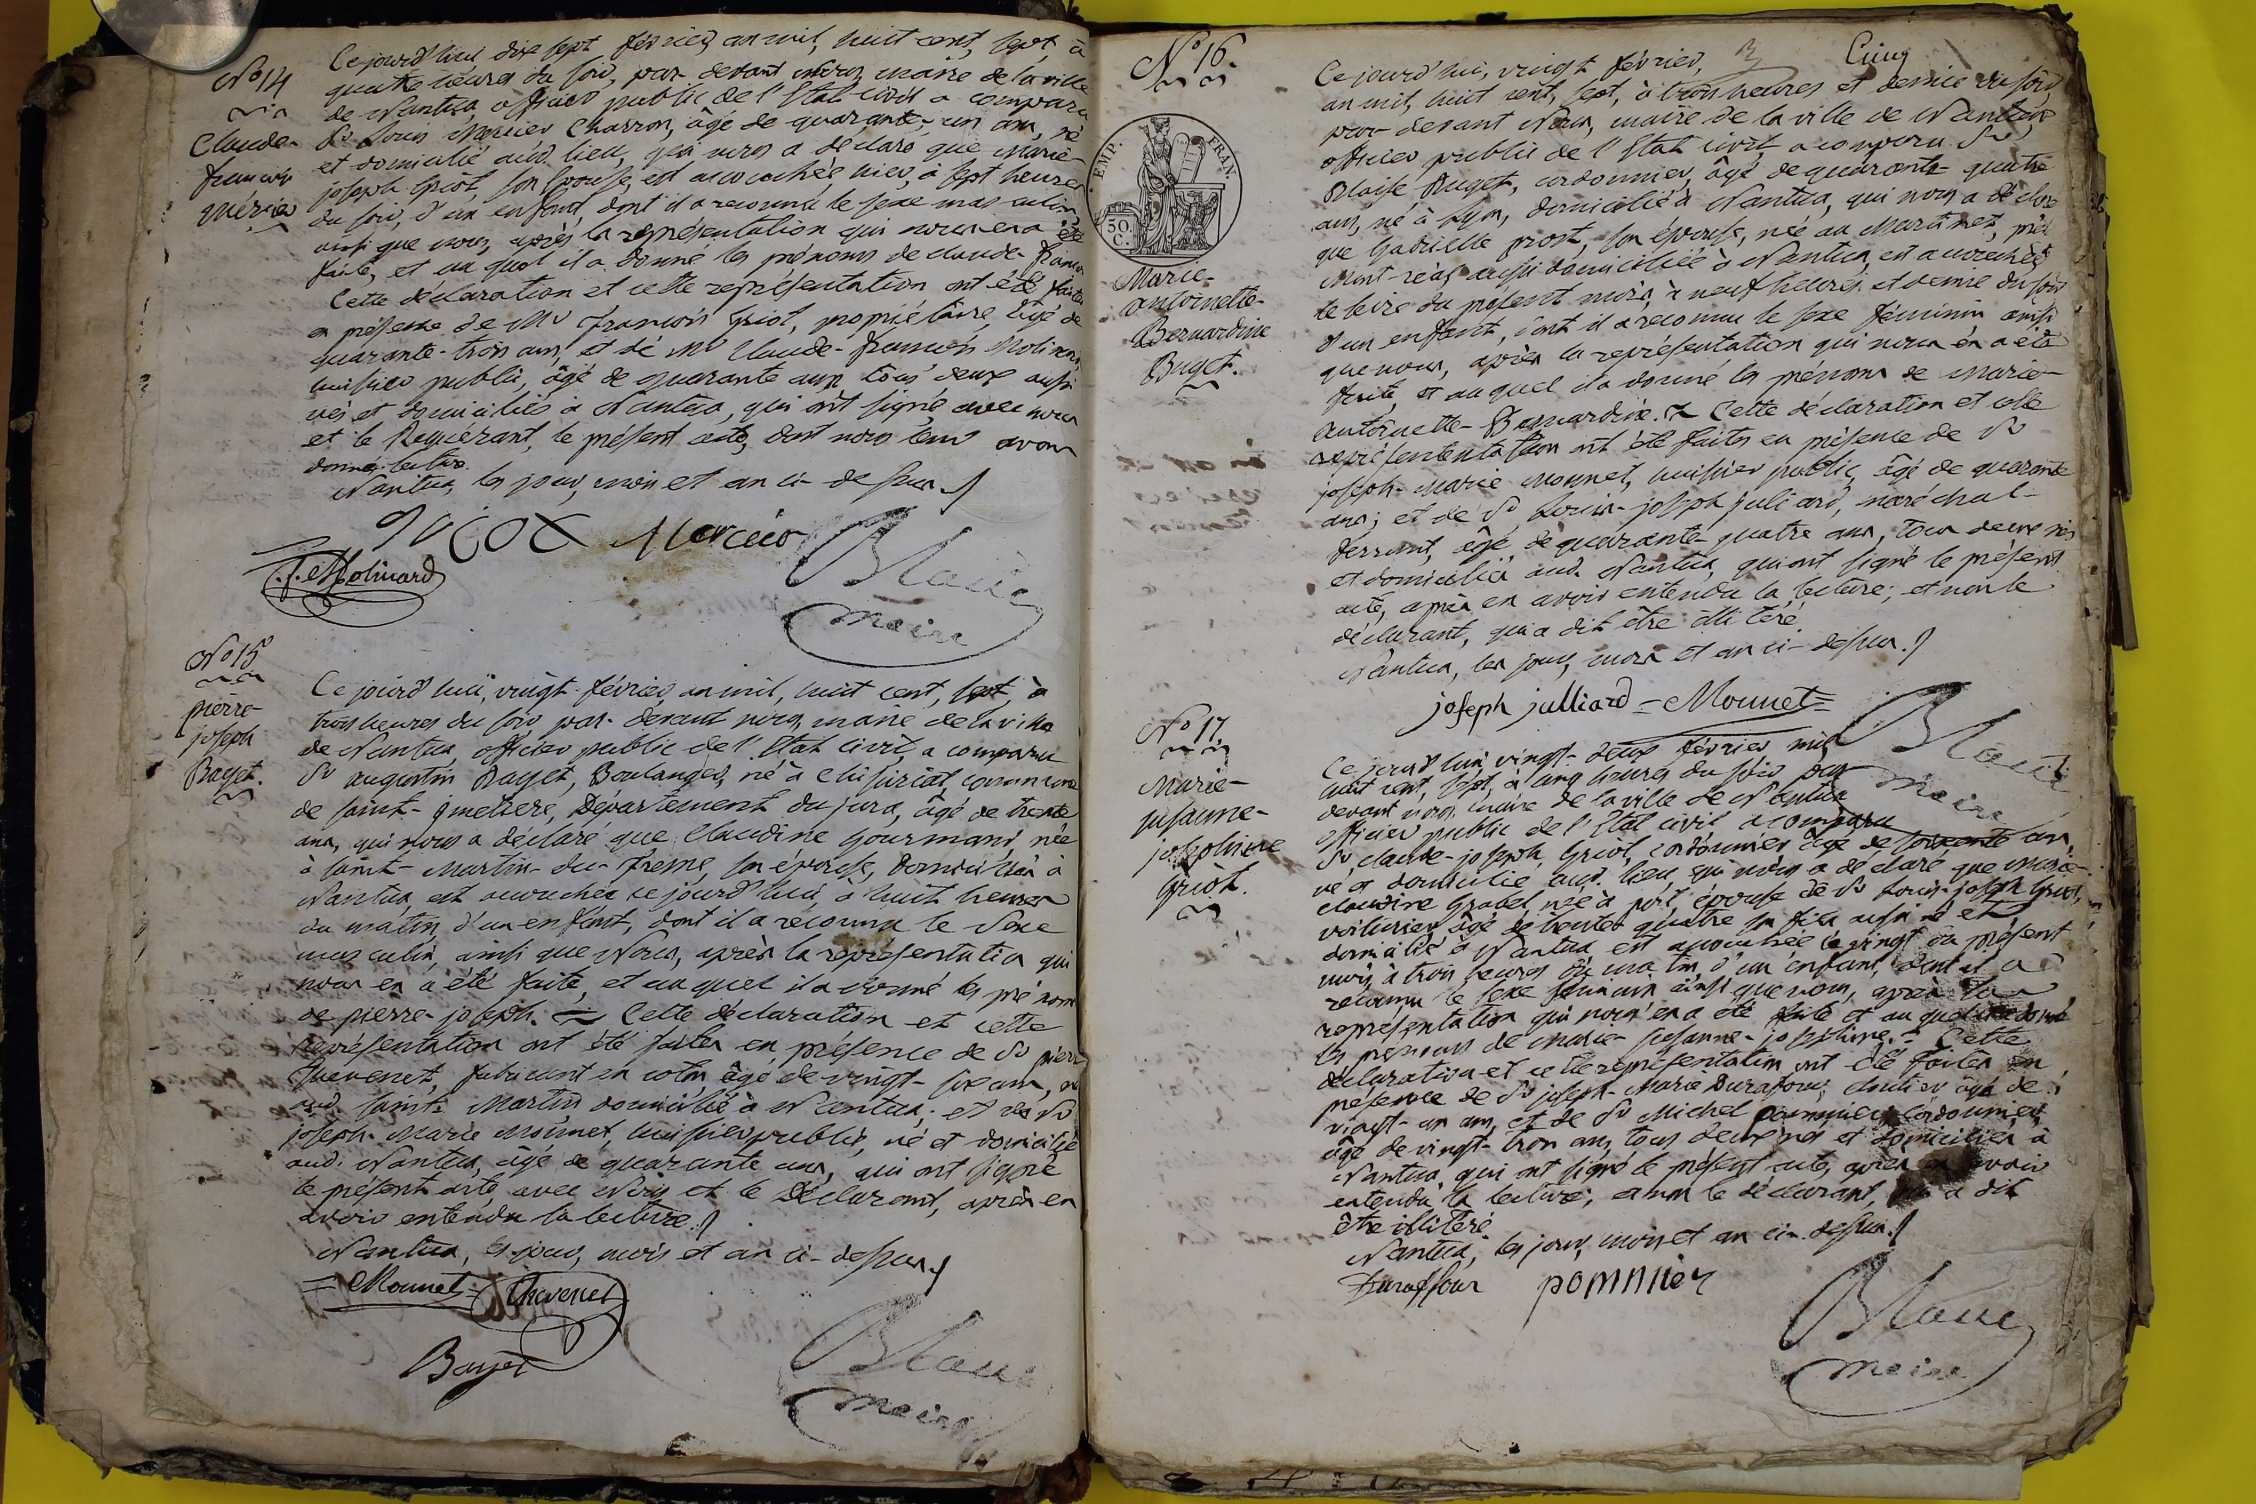 N° 14
Claude-
françois
Mercier
Ce jourd'hui dix sept février, an mil, huit cent, sept à
quatre heures du soir, par-devant nous, maire de la ville
de Nantua, officier public de l'Etat civil a comparu
Sr Louis Mercier Charron, âgé de quarante-un ans, né
et domicilié aud. lieu, qui nous a déclaré que Marie-
joseph son Epouse, est accouchée, hier, à sept heures
du soir, d'un enfant, dont il a reconnu le sexe masculin,
ainsi que nous, après la représentation qui nous en a été
faite, et au quel il a donné les prénoms de claude-françois
Cette déclaration et cette représentation ont été faites
en présence de Mr françois propriétaire, âgé de
quarante-trois ans, et de Mr Claude-françois Molinard,
huissier public, âgé de quarante ans tous deux aussi
nés et domiciliés à Nantua, qui ont signé avec nous
et le Requérant, le présent acte, dont nous leur avons
donné lecture.
Nantua, les jour, mois et an ci-dessus.
Mercier
Molinard
maire
N° 15
pierre-
joseph
Bayet.
Ce jourd'hui, vingt février, an mil, huit cent, sept, à
trois heures du soir par-devant nous, maire de la ville
de Nantua, officier public de l'Etat civil, a comparu
Sr augustin Bayet, Boulanger, né à commune
de saint-ymetiere, Département du jura, âgé de trente
ans, qui nous a déclaré que Claudine Gourmand, née
à saint-Martin-du-frêne, son épouse, domiciliée à
Nantua, est accouchée ce jourd'hui, à huit heures
du matin, d'un enfant, dont il a reconnu le sexe
masculin, ainsi que Nous, après la représentation qui
nous en a été faite, et au quel il a donné les prénoms
de pierre-joseph. = Cette déclaration et cette
représentation ont été faites en présence de Sr pierre
Thevenet, fabricant en coton, âgé de vingt-six ans, né
aud. saint-Martin domicilié à Nantua; et de Sr
joseph-Marie Mounet, huissier public, né et domicilié
aud. Nantua, âgé de quarante ans, qui ont signé
le présent acte, avec Nous et le Déclarant, après en
avoir entendu la lecture.
Nantua, les jour, mois et an ci-dessus.
= Mounet = Thevenet
Bayet
maire
Cinq
N° 16
EMP. FRAN.
50 C.
Marie-
antoinette-
Bernardine
Buget.
Ce jourd'hui, vingt février,
an mil, huit cent, sept, à trois heures et demie du soir,
par-devant Nous, maire de la ville de Nantua,
officier public de l'Etat civil, a comparu Sr
Blaise Buget, cordonnier, âgé de quarante-quatre
ans, né à Lyon, domicilié à Nantua, qui nous a déclaré
que Gabrielle prost, son épouse, née au Martinet, près
Mont-réal, aussi domiciliée à Nantua, est accouchée,
du présent mois, à neuf heures et demie du soir
d'un enfant, dont il a reconnu le sexe féminin, ainsi
que nous, après la représentation qui nous en a été
faite, et au quel il a donné les prénoms de marie-
antoinette-Bernardine. = Cette déclaration et cette
représentation ont été faites en présence de Sr
joseph-Marie Mounet, huissier public, âgé de quarante
ans; et de Sr Louis-joseph juliard, maréchal-
ferrant, âgé, de quarante-quatre ans, tous deux nés
et domiciliés aud. Nantua, qui ont signé le présent
acte, après en avoir entendu la lecture; et non le
déclarant, qui a dit être illitéré.
Nantua, les jour, mois et an ci-dessus.
joseph julliard = Mounet =
maire
N° 17
Marie-
susanne-
josephine
Griot.
Ce jourd'hui vingt-deux février mil
huit cent, sept, à cinq heures du soir par
devant nous, maire de la ville de Nantua
officier public de l'Etat civil a comparu
Sr claude-joseph Griot, cordonnier âgé de soixante ans,
né et domicilié aud. lieu, qui nous a déclaré que marie-
claudine née à épouse de Sr Louis-joseph Griot,
voiturier, âgé de trente quatre son fils aussi né et
domicilié à Nantua est accouchée le vingt du présent
mois, à trois heures du matin, d'un enfant, dont il a
reconnu le sexe féminin ainsi que nous, après la
représentation qui nous en a été faite et au quel il a donné
les prénoms de marie-susanne-josephine. = Cette
déclaration et cette représentation ont été faites en
présence de Sr joseph-Marie Durafour, âgé de
vingt-un ans, et de Sr Michel pommier, Cordonnier,
âgé de vingt-trois ans, tous deux nés et domiciliés à
Nantua, qui ont signé le présent acte, après en avoir
entendu la lecture; et non le déclarant, qui a dit
être illitéré.
Nantua, les jour, mois et an ci-dessus.
Duraffour pommier
maire